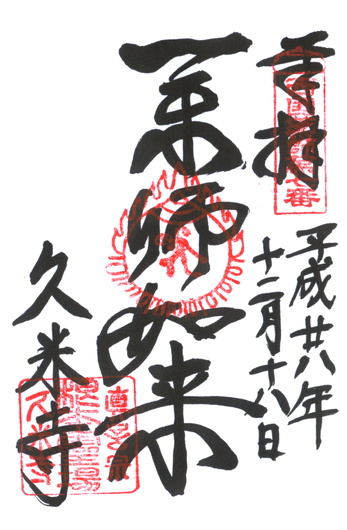 奉拝
平成廿八年
十二月十八日
薬師如来
久米寺